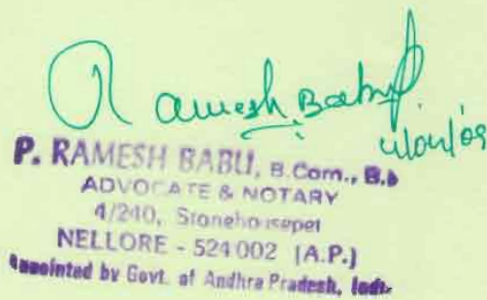 Ramesh Babu
P. RAMESH BABU, B.Com., B.L
ADVOCATE & NOTARY
4/240, Stonehousepet
NELLORE - 524 002 (A.P.)
Appointed by Govt. of Andhra Pradesh, India